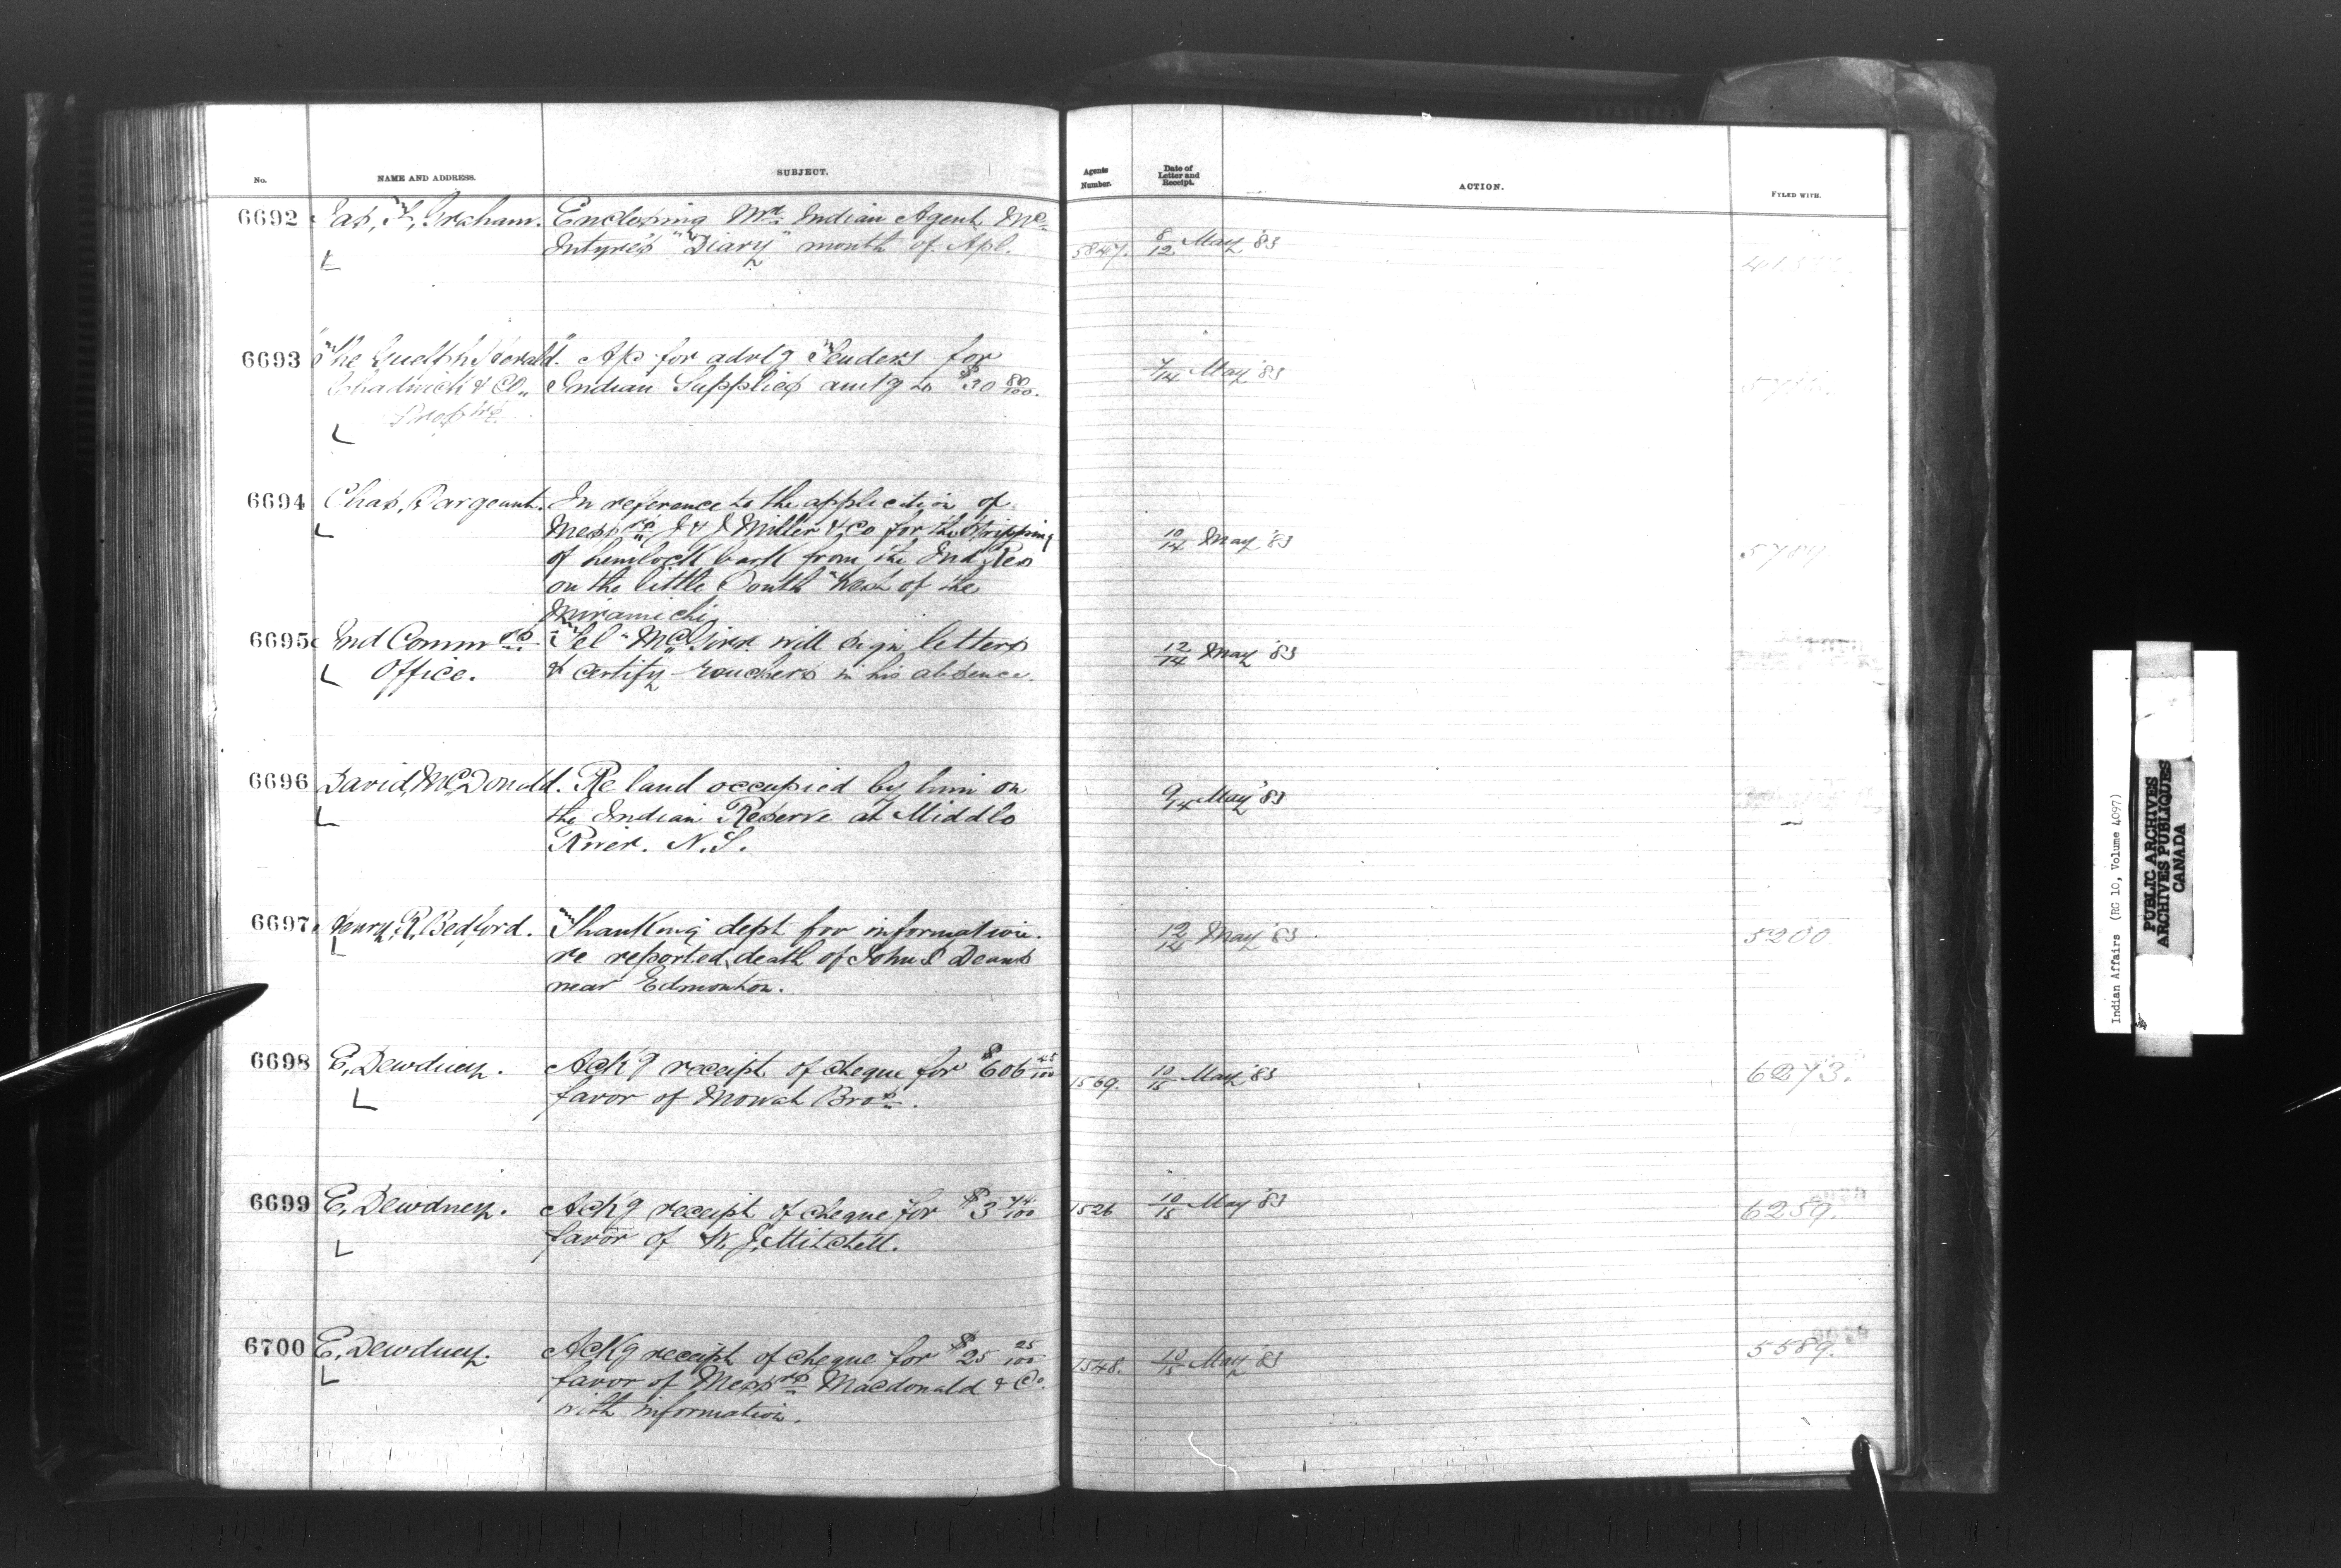 No.
NAME AND ADDRESS.
SUBJECT.
Agents Number.
Date of Letter and Receipt.
ACTION.
FYLED WITH.
6692 Jas, F, Graham. Enclosing Mr Indian Agent Mc
Intyre's "Diary" month of Apl. 5847. 8/12 May '83
6693 "The Guelph Herald". A/c for advtg Tenders for
Chadwick & Co,, Indian Supplies amtg to $30 80/100. 7/14 May '83
Proprs.
6694 Chas, Sargeant. In reference to the application of
Messrs J & J Miller & Co for the stripping
of hemlock bark from the Ind Res 10/14 May '83
on the little South West of the
Miramichi
6695 Ind Commrs Tel - McGirr will sign letters
Office. & certify vouchers in his absence. 12/14 May '83
6696 David, McDonald. Re land occupied by him on
the Indian Reserve at Middle 9/14 May '83
River. N.S.
6697 Henry, R, Bedford. Thanking dept for information.
re reported death of John S Dennis 12/14 May '83 5200
near Edmonton.
6698 E, Dewdney. Ack'g receipt of cheque for $606 45/100
favor of Mowat Bros. 1569. 10/15 May '83 6273.
6699 E, Dewdney. Ack'g receipt of cheque for $3 74/100 1526 10/15 May '83 6259.
favor of W. J, Mitchell.
6700 E, Dewdney. Ack'g receipt of cheque for $25 25/100 1548. 10/15 May '83 5589.
favor of Messrs Macdonald & Co.
with information.
Indian Affairs (RG 10, Volume 4097)
PUBLIC ARCHIVES
ARCHIVES PUBLIQUES
CANADA